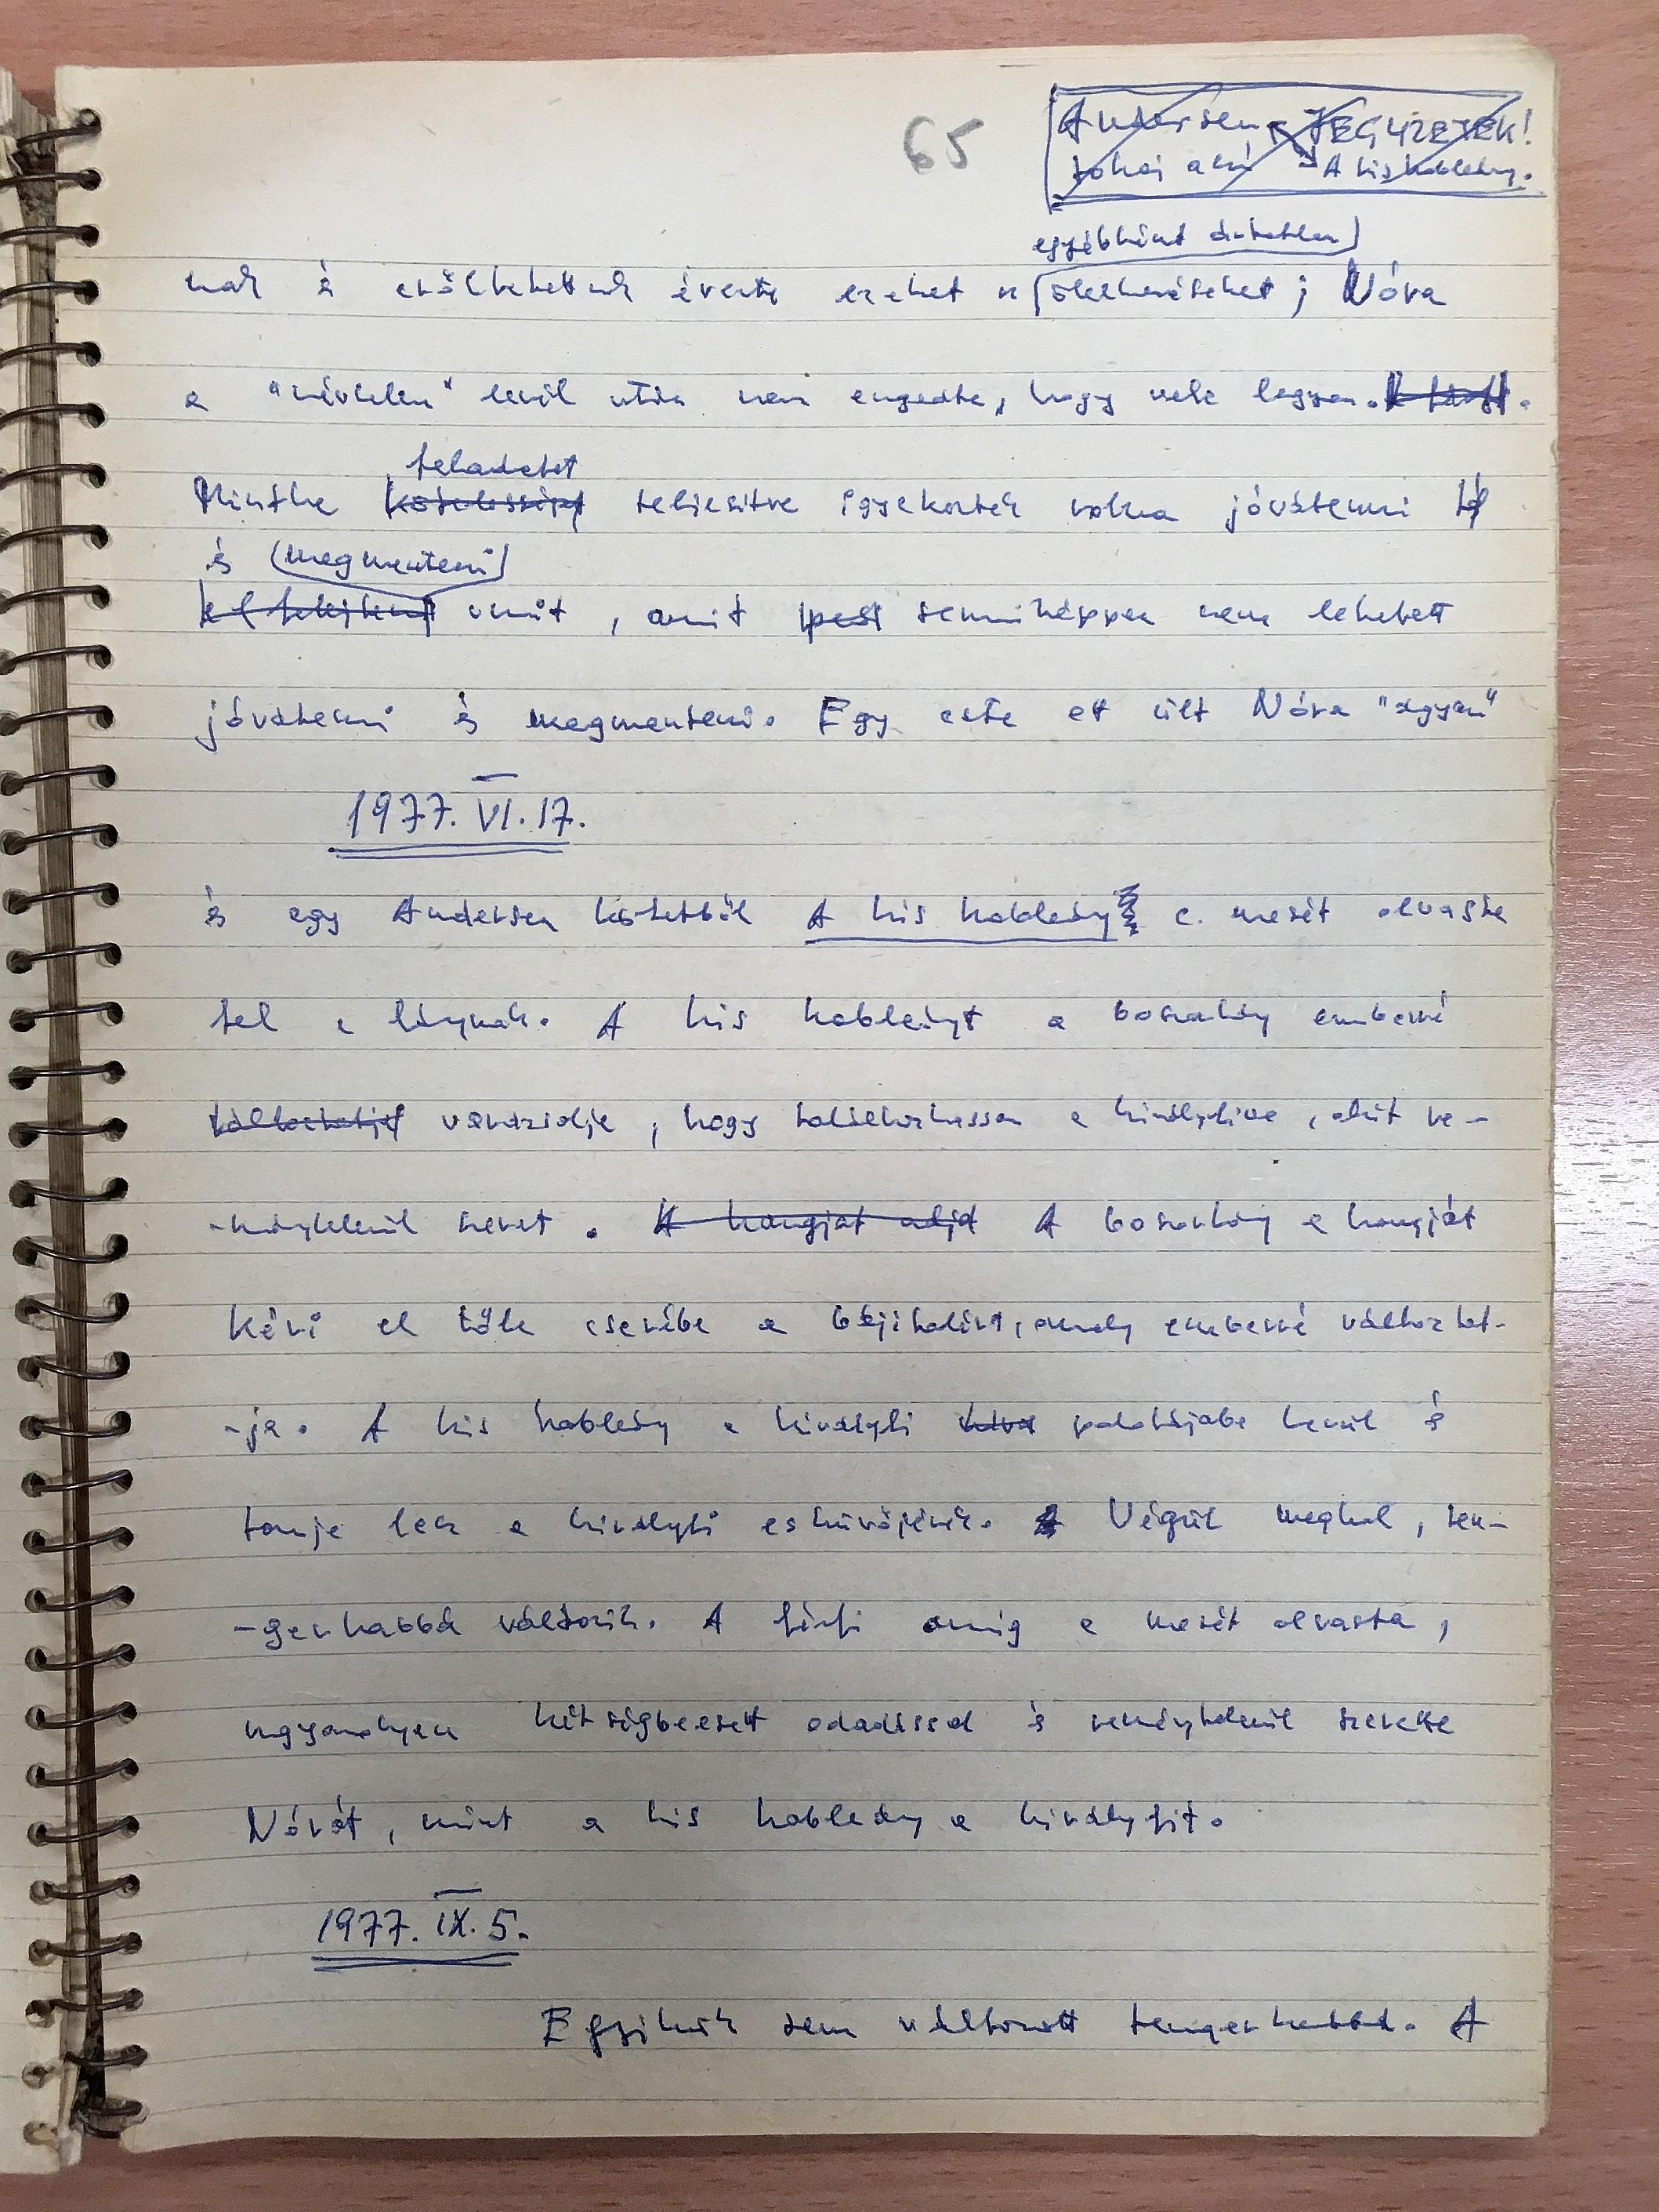 65
Andersen JEGYZETEK!
A kis hableány.
egyébként
nak és évente ezeket ; Nóra
a "névtelen" levél után nem engedte, hogy vele legyen.
feladatot
Mintha teljesítve igyekeztek volna jóvátenni
és megmenteni
amit semmiképpen nem lehetett
jóvátenni és megmenteni. Egy este ott ült Nóra "ágyán"
1977. VI. 17.
és egy Andersen kötetből A kis hableány c. mesét olvasta
fel a lánynak. A kis hableányt a boszorkány emberré
változtatja varázsolja, hogy találkozhasson a királyfival, akit re-
-ménytelenül szeret. A hangját adja A boszorkány a hangját
kéri el tőle cserébe a bájitalért, amely emberré változtat-
-ja. A kis hableány a királyfi palotájába kerül és
tanúja lesz a királyfi esküvőjének. Végül meghal, ten-
-gerhabbá változik. A férfi amíg a mesét olvasta,
ugyanolyan kétségbeesett odaadással és reménytelenül szerette
Nórát, mint a kis hableány a királyfit.
1977. IX. 5.
Egyikük sem változott tengerhabbá. A